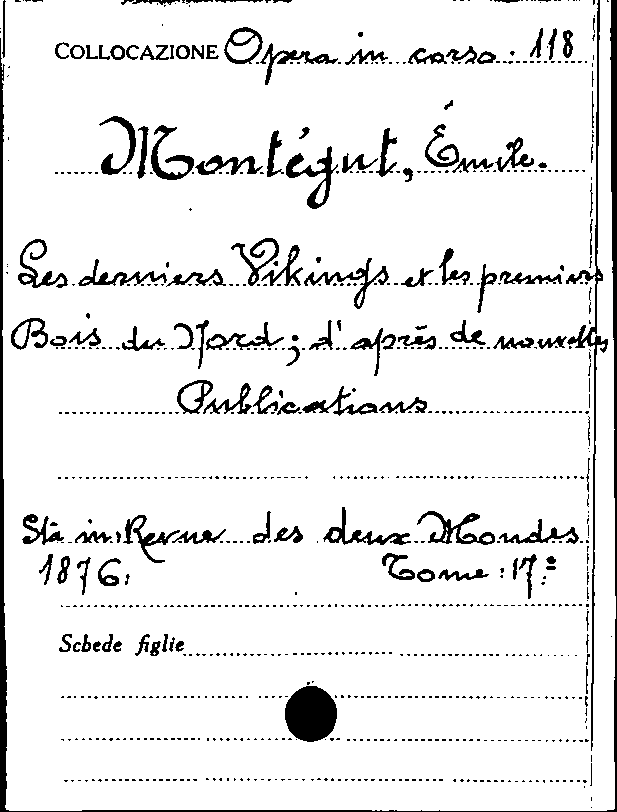 COLLOCAZIONE Opera in corso. 118
Montégut, Émile.
Les derniers Vikings et les premiers
Bois du Nord; d'après de nouvelles
Publications
Stà in: Revue des deux Mondes
1876. Tome: 17.º
Schede figlie